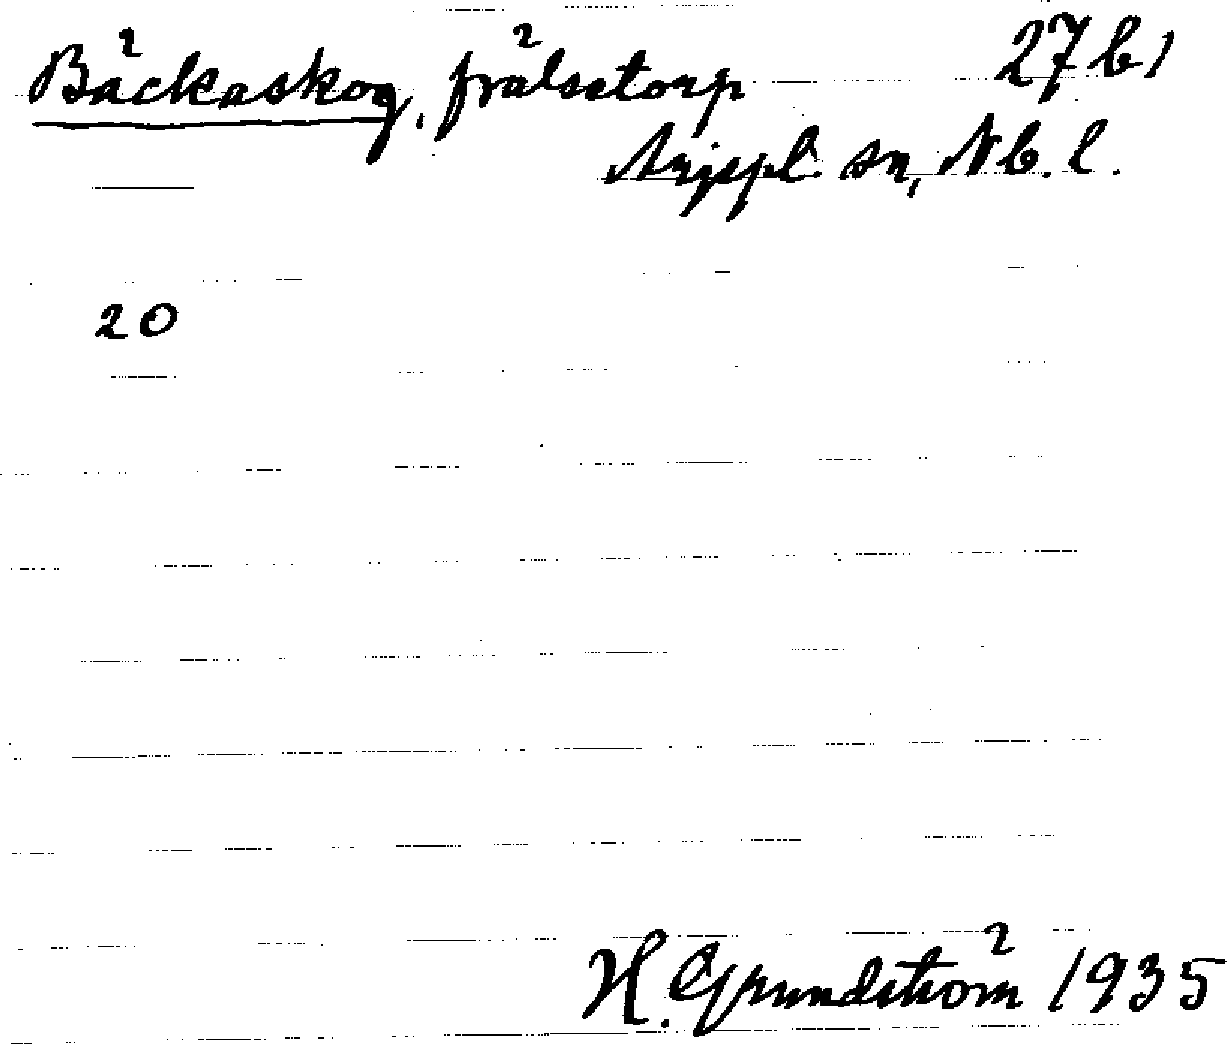 Bäckaskog, frälsetorp 27 b1
Arjepl. sn, Nb. l.
20
H. Grundström 1935